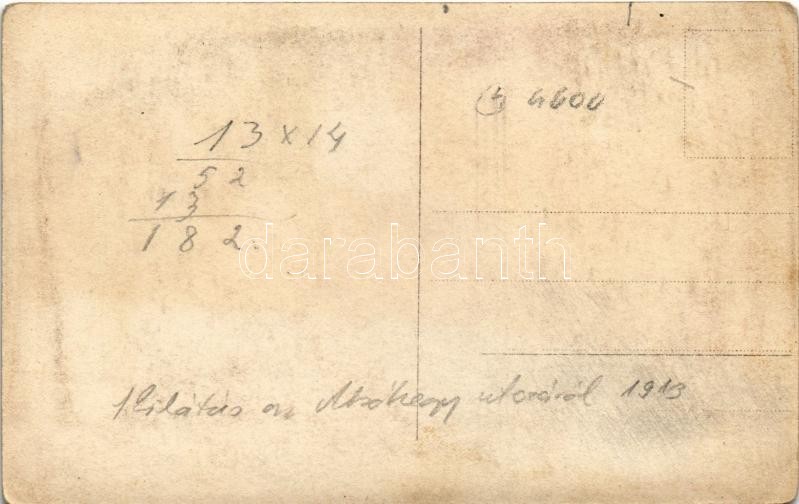 13 x 14
52
13
182
4600
darabanth
Kilátás az Alsóhegy utcáról 1913